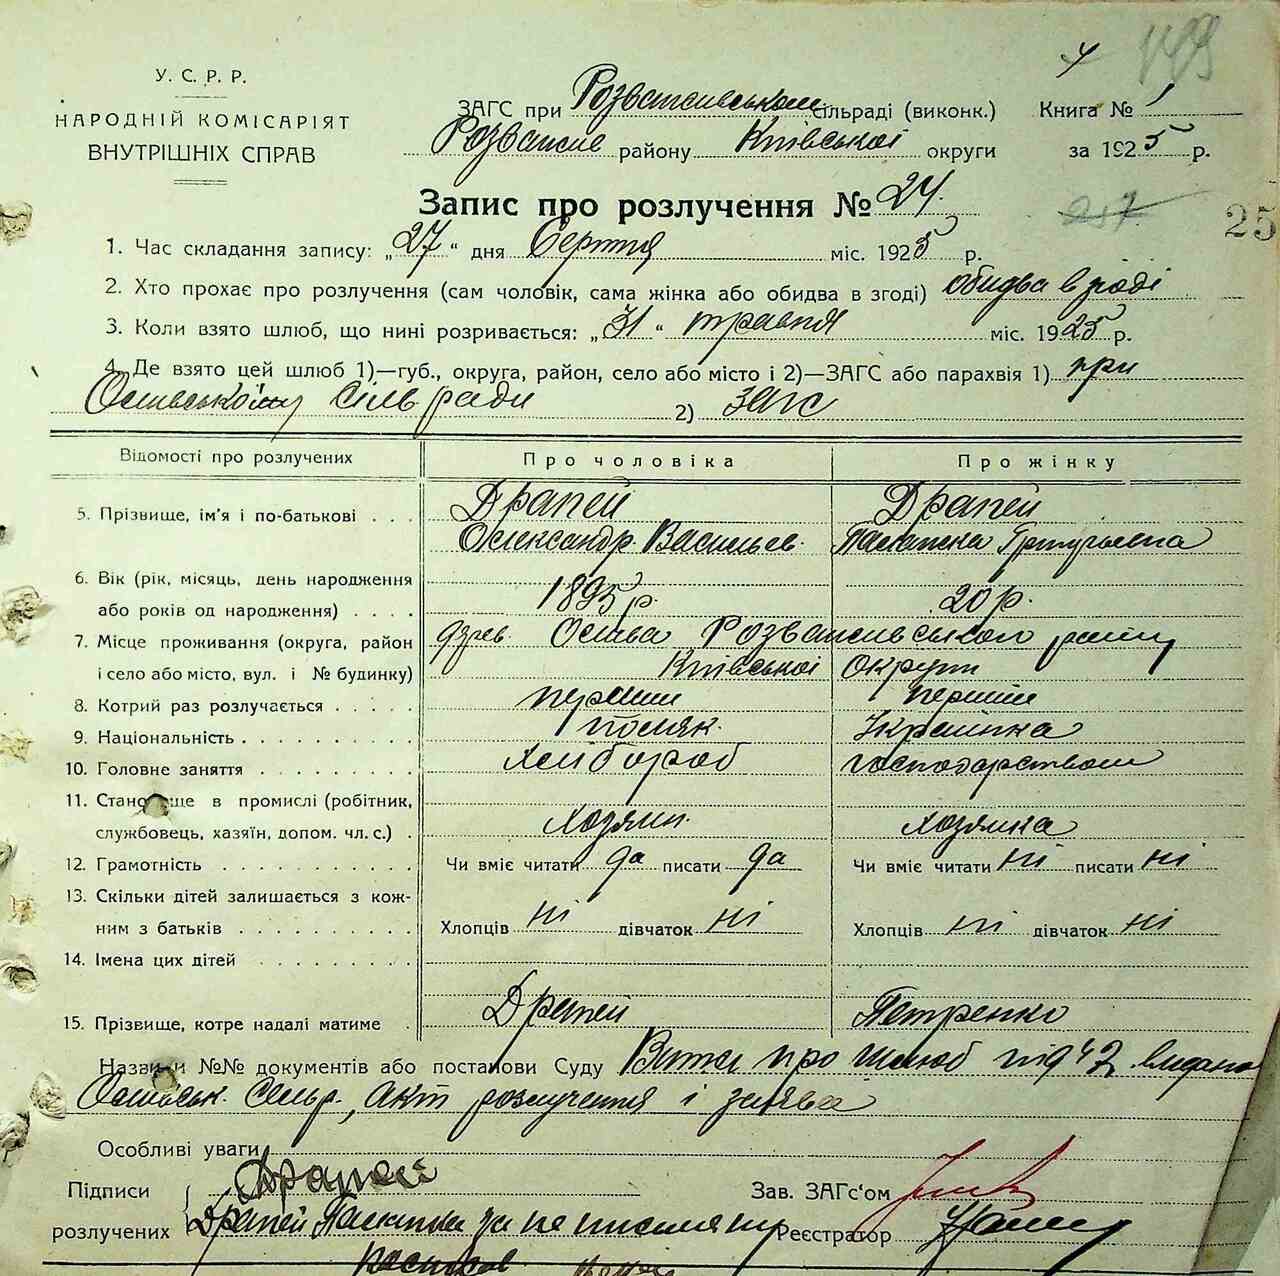 У. С. Р. Р.
НАРОДНІЙ КОМІСАРІЯТ
ВНУТРІШНІХ СПРАВ
ЗАГС при Розважівському сільраді (виконк.)
Розваже району Київської округи
Книга № 1
за 1925 р.
Запис про розлучення № 24.
25
1. Час складання запису: „27“ дня Серпня міс. 1925 р.
2. Хто прохає про розлучення (сам чоловік, сама жінка або обидва в згоді) обидва в згоді
3. Коли взято шлюб, що нині розривається: „31“ травня міс. 1925 р.
4. Де взято цей шлюб 1)—губ., округа, район, село або місто і 2)—ЗАГС або парахвія 1) при
сільради 2) ЗАГС
Відомості про розлучених Про чоловіка Про жінку
5. Прізвище, ім'я і по-батькові . . . Драпей Драпей
Олександр Васильев. Палажка Григорьевна
6. Вік (рік, місяць, день народження
або років од народження) . . . . 1895 р. 20 р.
7. Місце проживання (округа, район
і село або місто, вул. і № будинку)
Київської Округи
8. Котрий раз розлучається . . . . . перший перший
9. Національність . . . . . . . . . . поляк. Українка
10. Головне заняття . . . . . . . . . Хлібороб господарством
11. Становище в промислі (робітник,
службовець, хазяїн, допом. чл. с.) . хозяин. хозяйка
12. Грамотність . . . . . . . . . . Чи вміє читати да писати да Чи вміє читати ні писати ні
13. Скільки дітей залишається з кож-
ним з батьків . . . . . . . . . . Хлопців ні дівчаток ні Хлопців ні дівчаток ні
14. Імена цих дітей . . . . . . . . .
15. Прізвище, котре надалі матиме . Драпей Петренко
Назви й №№ документів або постанови Суду Витяг про шлюб під 42 видано
Сельр., акт розлучення і заява
Особливі уваги
Підписи Драпей Зав. ЗАГс‘ом
розлучених Драпей Палажка за не письмену Реєстратор